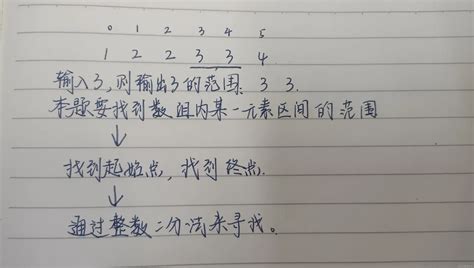 0 1 2 3 4 5
1 2 2 3 3 4
输入3,则输出3的范围: 3 3.
本题要找到数组内某一元素区间的范围
↓
找到起始点,找到终点.
↓
通过整数二分法来寻找。